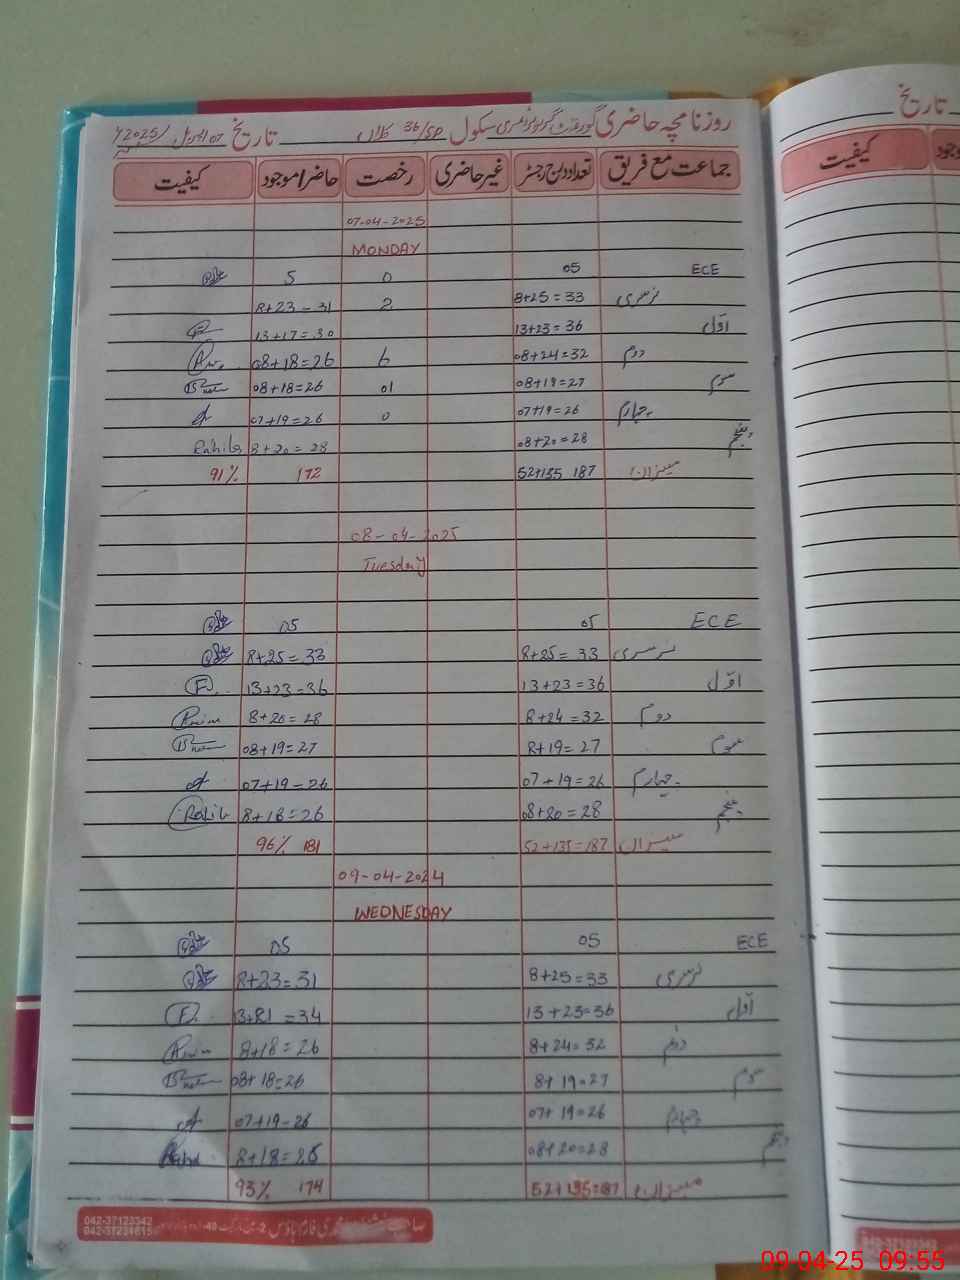 روزنامچہ حاضری گورنمنٹ گرلز پرائمری سکول 36/SP کلاں تاریخ 07 اپریل 2025ء
جماعت مع فریق تعداد درج رجسٹر غیر حاضری رخصت حاضر/موجود کیفیت
07-04-2025
MONDAY
ECE 05 0 5
نرسری 8+25=33 2 8+23=31
اوّل 13+23=36 13+17=30
دوم 08+24=32 6 08+18=26
سوم 08+19=27 01 08+18=26
چہارم 07+19=26 0 07+19=26
پنجم 08+20=28 8+20=28 Rahila
میزان 52+135 187 172 91%
08-04-2025
Tuesday
ECE 05 05
نرسری 8+25=33 8+25=33
اوّل 13+23=36 13+23=36 F.
دوم 8+24=32 8+20=28
سوم 8+19=27 08+19=27
چہارم 07+19=26 07+19-26
پنجم 08+20=28 8+18=26
میزان 52+135=187 181 96%
09-04-2024
WEDNESDAY
ECE 05 05
نرسری 8+25=33 8+23=31
اوّل 13+23=36 13+21=34 F.
دوم 8+24=32 8+18=26
سوم 8+19=27 08+18=26
چہارم 07+19=26 07+19-26
پنجم 08+20=28 8+18=26
میزان 52+135=187 174 93%
042-37123342
تاریخ
کیفیت
09-04-25 09:55